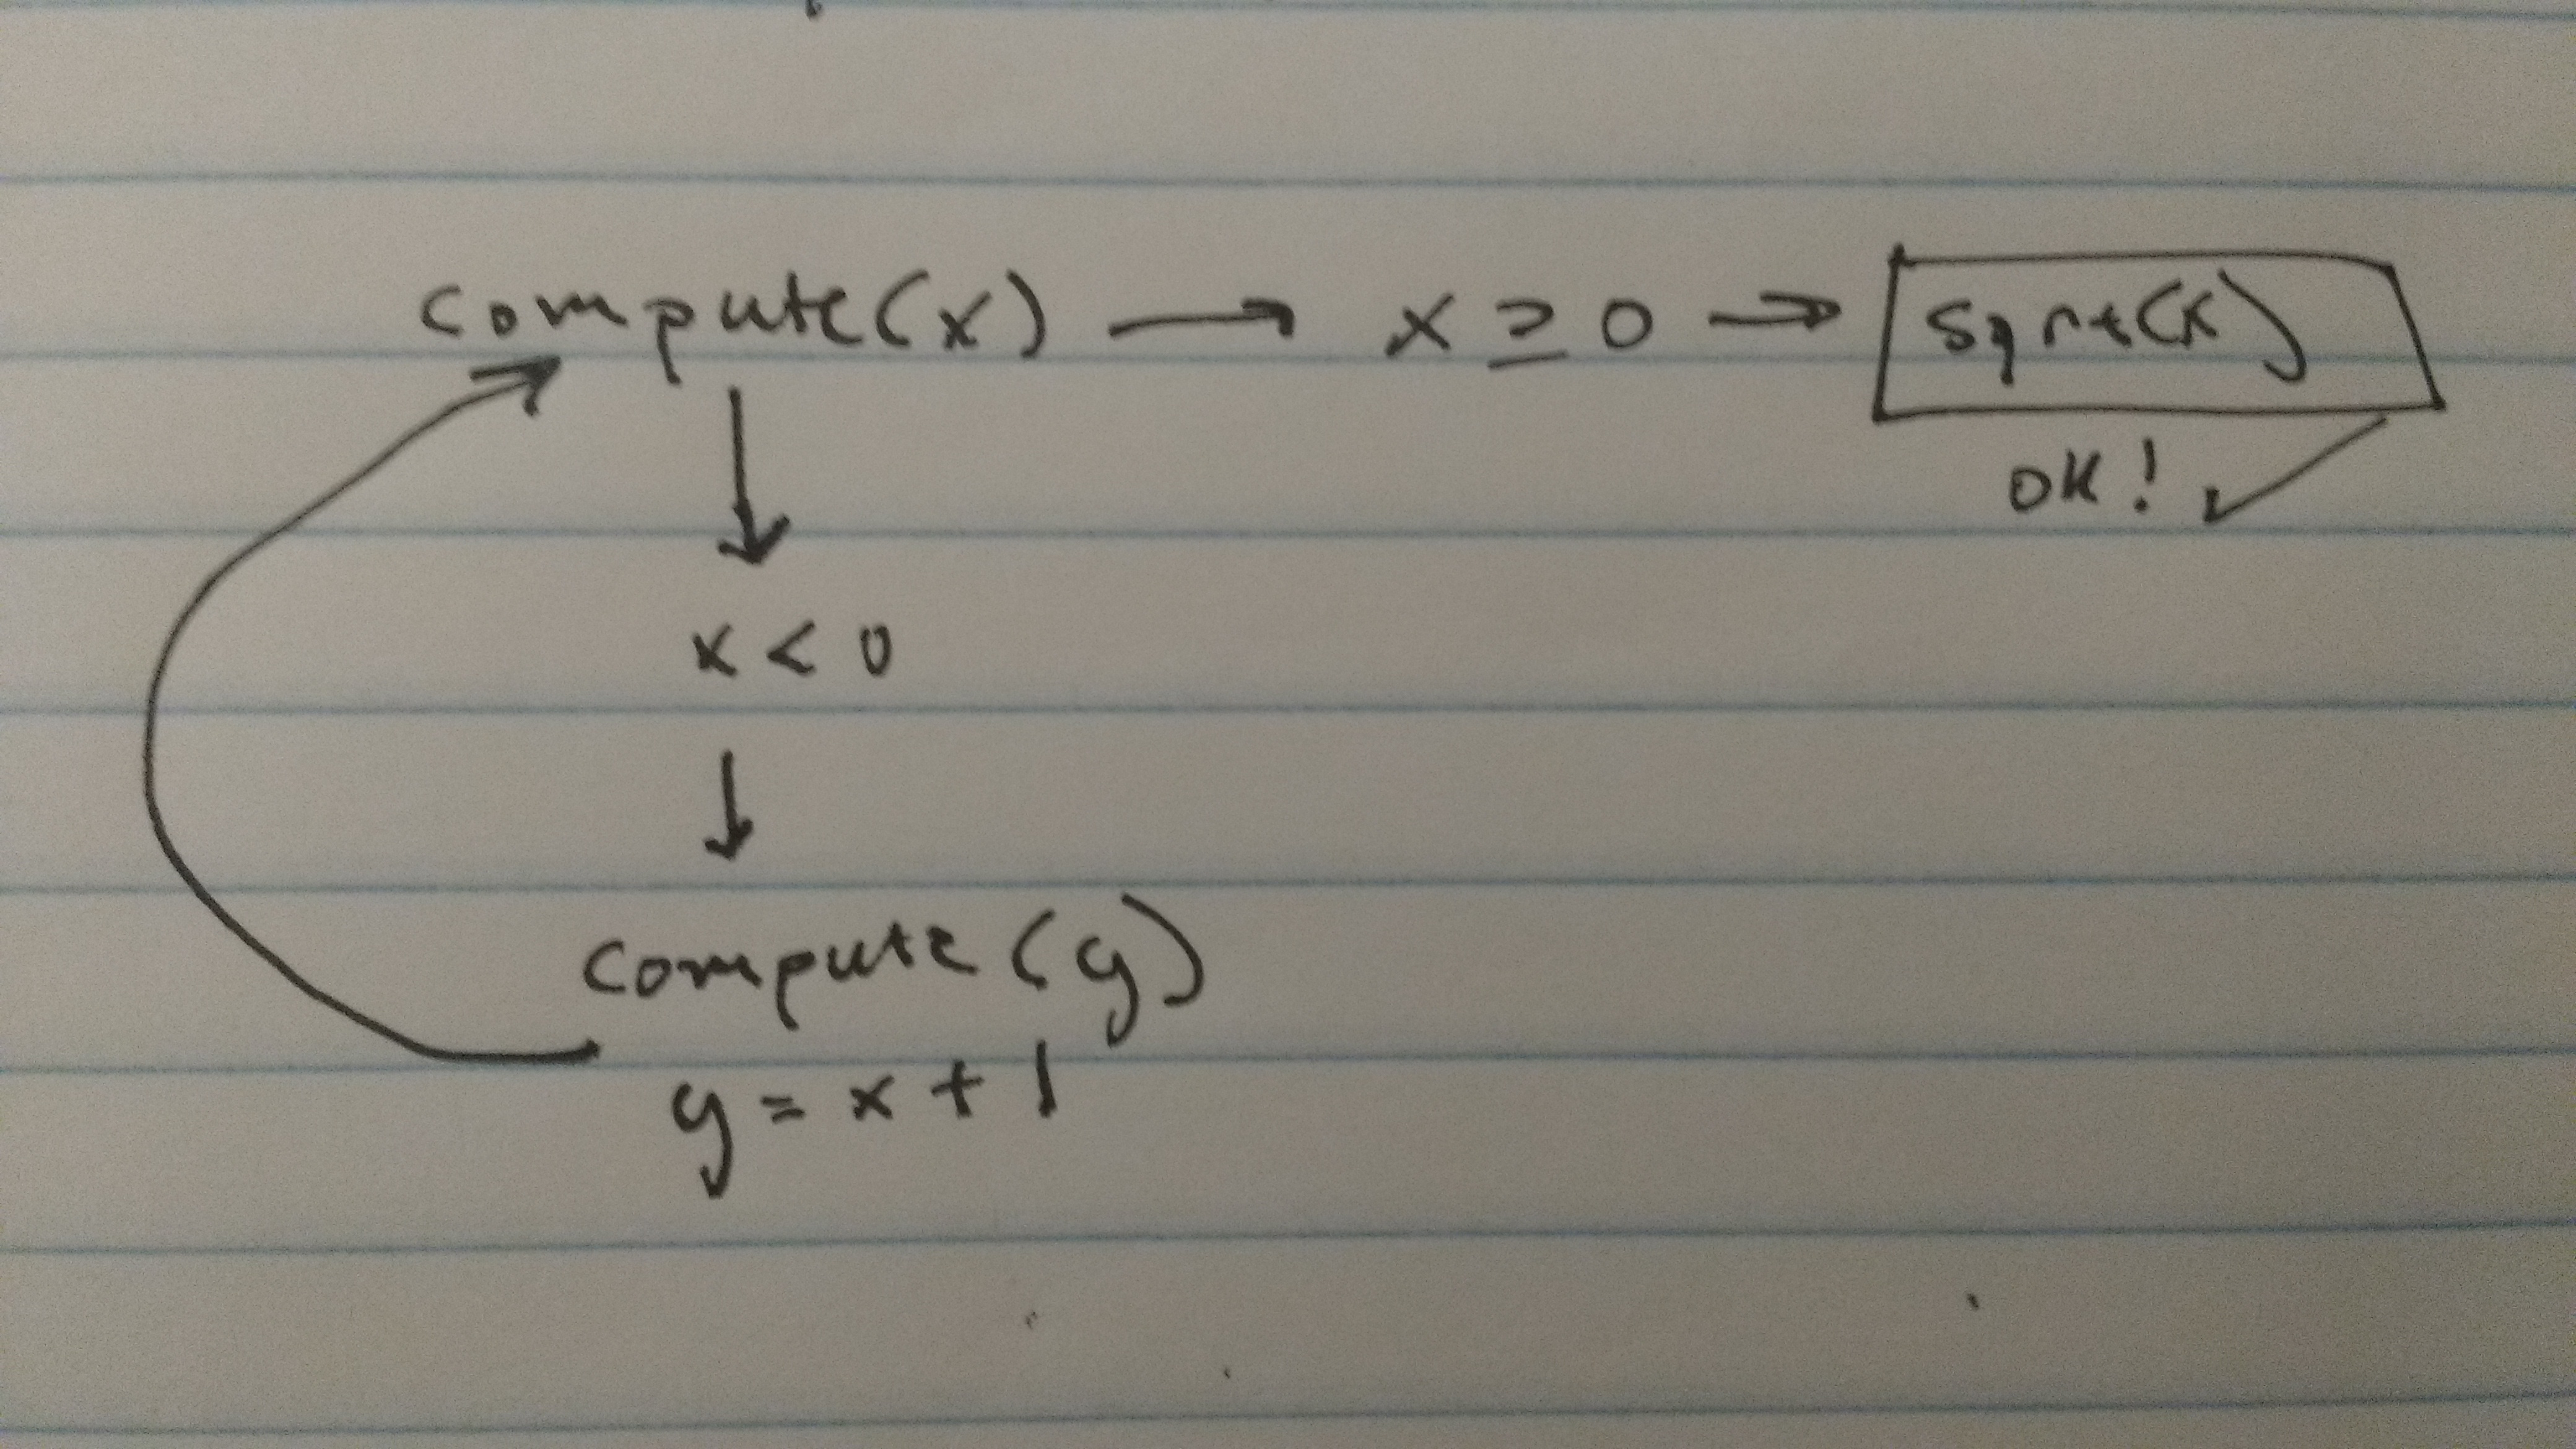 compute(x) → x ≥ 0 → sqrt(x)
OK! ✓
↓
x < 0
↓
compute(y)
y = x + 1